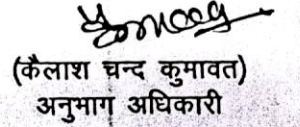 (कैलाश चन्द कुमावत)
अनुभाग अधिकारी